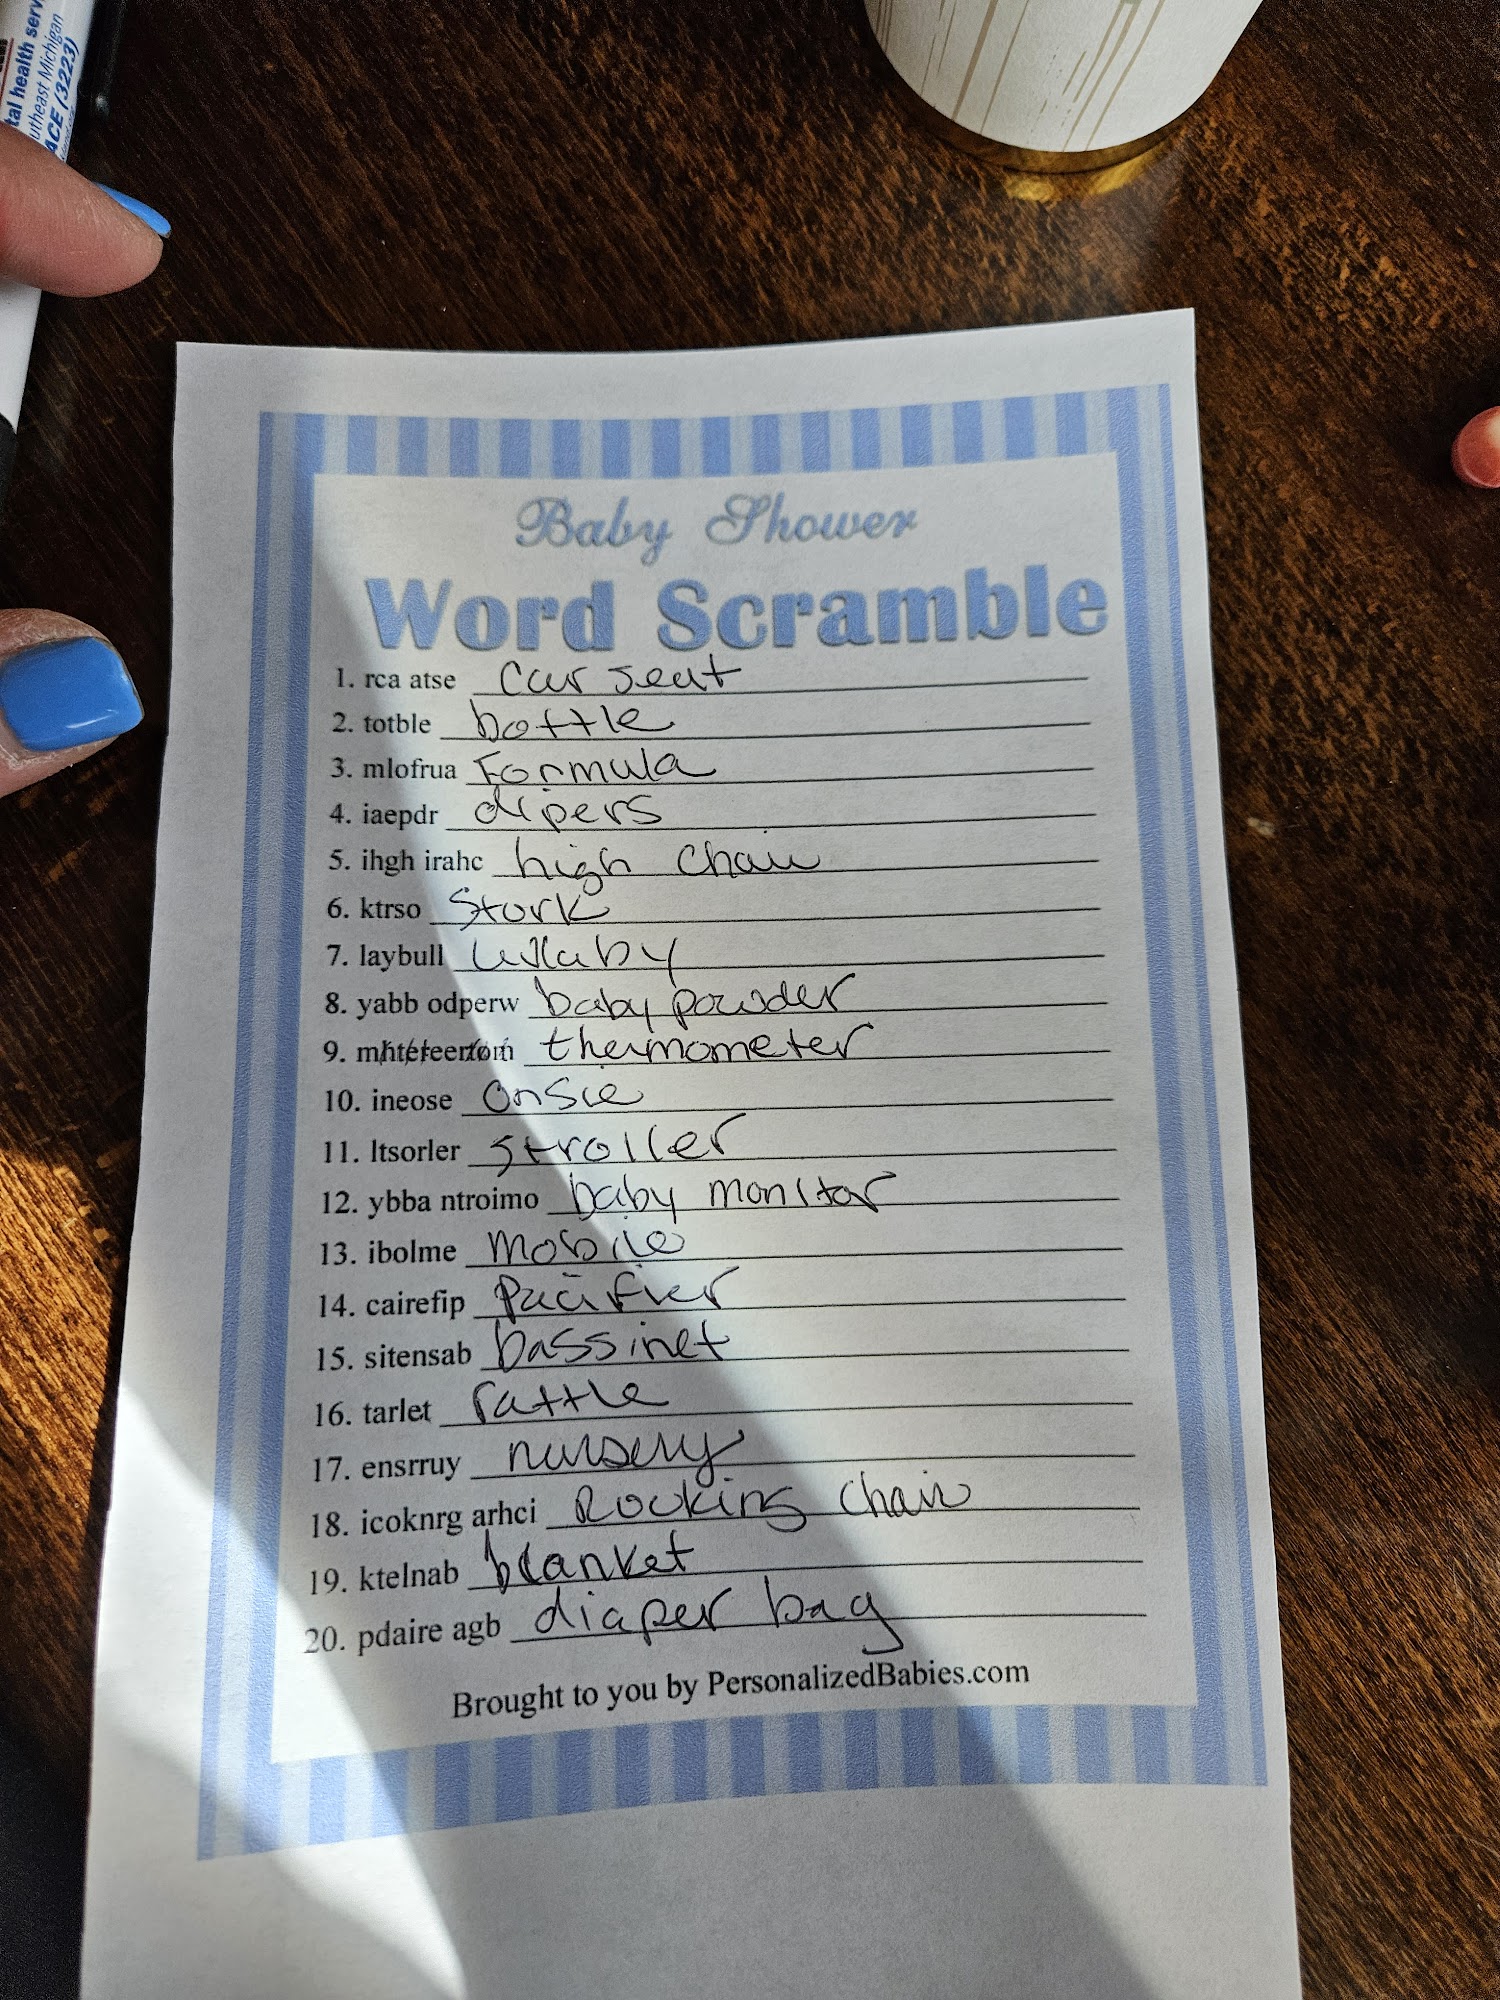 tal health serv
utheast Michigan
ACE (3223)
Baby Shower
Word Scramble
1. rca atse car seat
2. totble bottle
3. mlofrua Formula
4. iaepdr dipers
5. ihgh irahc high chair
6. ktrso Stork
7. laybull lullaby
8. yabb odperw baby powder
9. mhtereertom thermometer
10. ineose onsie
11. ltsorler stroller
12. ybba ntroimo baby monitor
13. ibolme mobile
14. cairefip pacifier
15. sitensab bassinet
16. tarlet rattle
17. ensrruy nursery
18. icoknrg arhci Rocking Chair
19. ktelnab blanket
20. pdaire agb diaper bag
Brought to you by PersonalizedBabies.com